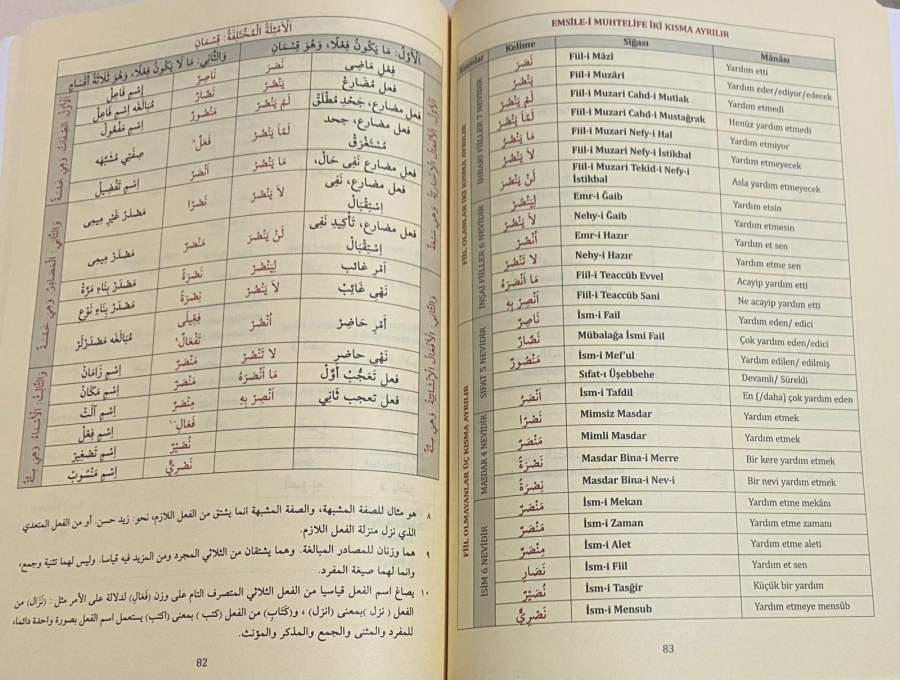 اَلْأَمْثِلَةُ الْمُخْتَلِفَةُ: قِسْمَانِ
اَلْأَوَّلُ: مَا يَكُونُ فِعْلًا، وَهُوَ قِسْمَانِ
وَالثَّانِي: مَا لَا يَكُونُ فِعْلًا، وَهُوَ ثَلَاثَةُ أَقْسَامٍ
فِعْل مَاضِى نَصَرَ نَاصِرٌ إِسْمِ فَاعِلْ
فعل مُضَارِعْ يَنْصُرُ نَصَّارٌ مُبَالَغَه إِسْمِ فَاعِلْ
فعل مضارع، جَحْدِ مُطْلَقْ لَمْ يَنْصُرْ مَنْصُورٌ إِسْمِ مَفْعُولْ
فعل مضارع، جحد مُسْتَغْرَقْ لَمَّا يَنْصُرْ فَعَلٌ٨ صِفَتِي مُشَبَّهَه
فعل مضارع نَفِى حَالْ، مَا يَنْصُرُ أَنْصَرُ إِسْمِ تَفْضِيلْ
فعل مضارع، نَفِى إِسْتِقْبَالْ لَا يَنْصُرُ نَصْرًا مَصْدَرْ غَيْرِ مِيمِى
فعل مضارع، تَأْكِيدِ نَفِى إِسْتِقْبَالْ لَنْ يَنْصُرَ مَنْصَرٌ مَصْدَرْ مِيمِى
أَمْرِ غائب لِيَنْصُرْ نَصْرَةً مَصْدَرْ بِنَاءِ مَرَّهْ
نَهْىِ غَائِبْ لَا يَنْصُرْ نِصْرَةً مَصْدَرْ بِنَاءِ نَوْعْ
أَمْرِ حَاضِرْ أُنْصُرْ فِعِّيلَى تَفْعَالٌ٩ مُبَالَغَه مَصْدَرْلَرْ
نَهْىِ حاضر لَا تَنْصُرْ مَنْصَرٌ إِسْمِ زَمَانْ
فعل تَعَجُّبْ أَوَّلْ مَا أَنْصَرَهُ مَنْصَرٌ إِسْمِ مَكَانْ
فعل تعجب ثَانِي أَنْصِرْ بِهِ مِنْصَرٌ إِسْمِ آلَتْ
فَعَالِ١٠ إِسْمِ فِعْلْ
نُصَيْرٌ إِسْمِ تَصْغِيرْ
نَصْرِيٌّ إِسْمِ مَنْسُوبْ
٨ هو مثال للصفة المشبهة، والصفة المشبهة انما يشتق من الفعل اللازم، نحو: زيد حسن. أو من الفعل المتعدي
الذي نزل منزلة الفعل اللازم.
٩ هما وزنان للمصادر المبالغة. وهما يشتقان من الثلاثي المجرد ومن المزيد فيه قياسا. وليس لهما تثنية وجمع،
وانما لهما صيغة المفرد.
١٠ يصاغ اسم الفعل قياسيا من الفعل الثلاثي المتصرف التام على وزن (فَعَالِ) لدلالة على الأمر مثل : (نَزَالِ) من
الفعل ( نزل )بمعنى (انزل) ، و(كَتَابِ) من الفعل (كتب ) بمعنى (اكتب) يستعمل اسم الفعل بصورة واحدة دائما،
للمفرد والمثنى والجمع والمذكر والمؤنث.
82
EMSİLE-İ MUHTELİFE İKİ KISMA AYRILIR
Kısımlar Kelime Sîğası Mânâsı
FİİL OLANLAR İKİ KISMA AYRILIR
İHBARİ FİİLLER 7 NEVİDİR
نَصَرَ Fiil-i Mâzi Yardım etti
يَنْصُرُ Fiil-i Muzâri Yardım eder/ediyor/edecek
لَمْ يَنْصُرْ Fiil-i Muzari Cahd-i Mutlak Yardım etmedi
لَمَّا يَنْصُرْ Fiil-i Muzari Cahd-i Mustağrak Henüz yardım etmedi
مَا يَنْصُرُ Fiil-i Muzari Nefy-i Hal Yardım etmiyor
لَا يَنْصُرُ Fiil-i Muzari Nefy-i İstikbal Yardım etmeyecek
لَنْ يَنْصُرَ Fiil-i Muzari Tekid-i Nefy-i İstikbal Asla yardım etmeyecek
İNŞAİ FİİLLER 6 NEVİDİR
لِيَنْصُرْ Emr-i Ğaib Yardım etsin
لَا يَنْصُرْ Nehy-i Ğaib Yardım etmesin
أُنْصُرْ Emr-i Hazır Yardım et sen
لَا تَنْصُرْ Nehy-i Hazır Yardım etme sen
مَا أَنْصَرَهُ Fiil-i Teaccüb Evvel Acayip yardım etti
أَنْصِرْ بِهِ Fiil-i Teaccüb Sani Ne acayip yardım etti
FİİL OLMAYANLAR ÜÇ KISMA AYRILIR
SIFAT 5 NEVİDİR
نَاصِرٌ İsm-i Fail Yardım eden/ edici
نَصَّارٌ Mübalağa İsmi Fail Çok yardım eden/edici
مَنْصُورٌ İsm-i Mef'ul Yardım edilen/ edilmiş
Sıfat-ı Üşebbehe Devamlı/ Sürekli
أَنْصَرُ İsm-i Tafdil En (/daha) çok yardım eden
MASDAR 4 NEVİDİR
نَصْرًا Mimsiz Masdar Yardım etmek
مَنْصَرٌ Mimli Masdar Yardım etmek
نَصْرَةً Masdar Bina-i Merre Bir kere yardım etmek
نِصْرَةً Masdar Bina-i Nev-i Bir nevi yardım etmek
İSİM 6 NEVİDİR
مَنْصَرٌ İsm-i Mekan Yardım etme mekânı
مَنْصَرٌ İsm-i Zaman Yardım etme zamanı
مِنْصَرٌ İsm-i Alet Yardım etme aleti
نَصَارِ İsm-i Fiil Yardım et sen
نُصَيْرٌ İsm-i Tasğir Küçük bir yardım
نَصْرِيٌّ İsm-i Mensub Yardım etmeye mensûb
83